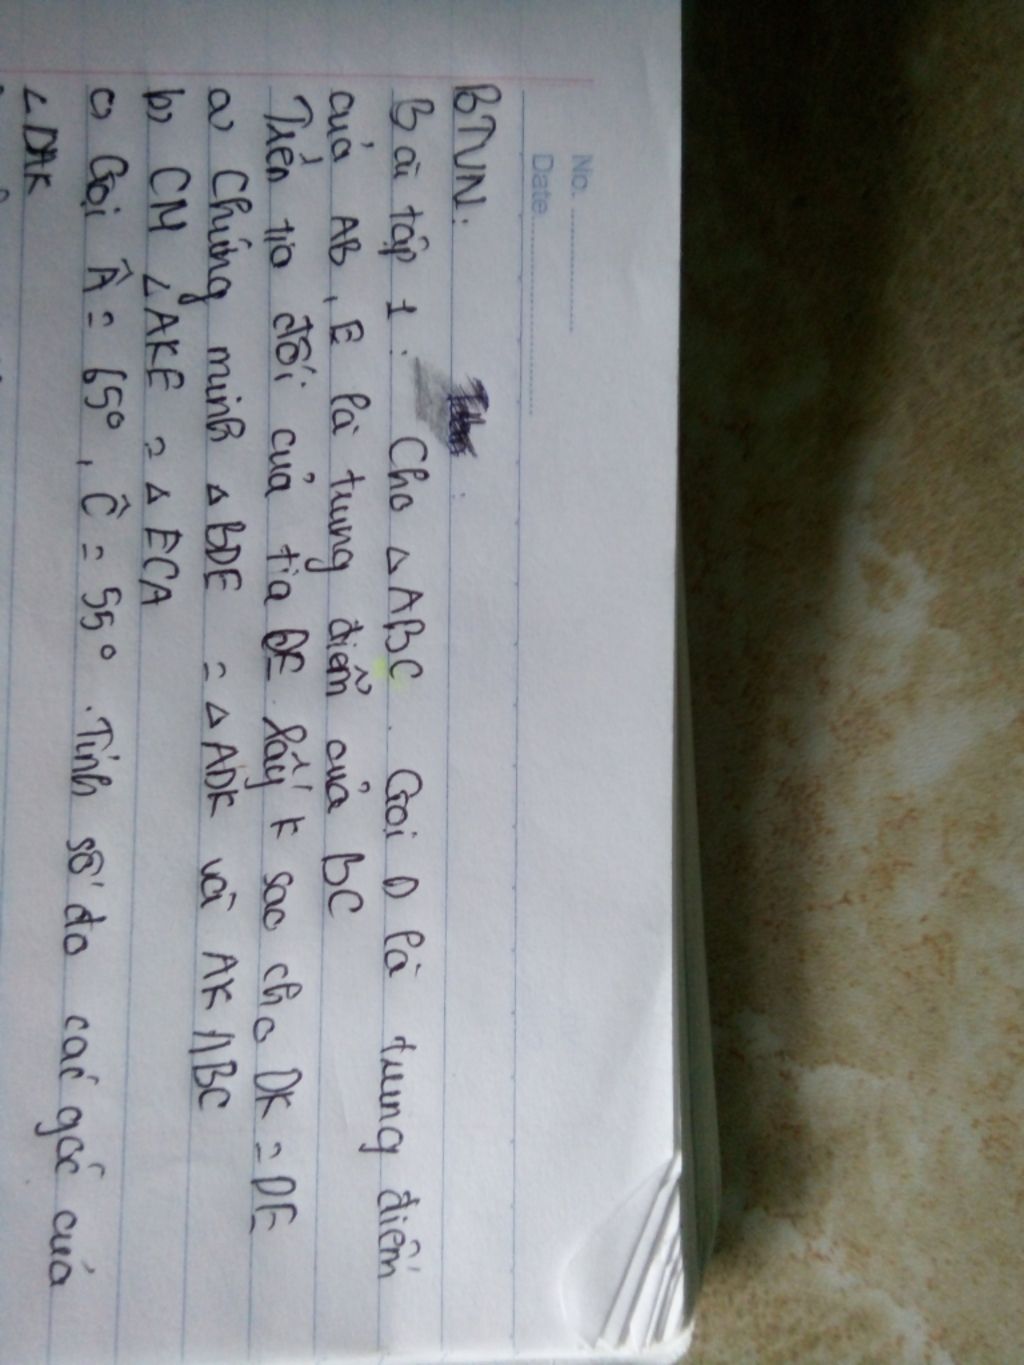 No. ...............
Date ...............................
BTVN.
Bài tập 1. Cho △ABC. Gọi D là trung điểm
của AB, E là trung điểm của BC
Trên tia đối của tia DE lấy K sao cho DK = DE
a) Chứng minh △BDE = △ADK và AK ∧ BC
b) CM ∠AKE = △ECA
c) Gọi Â = 65°, Ĉ = 55°. Tính số đo các góc của
∠DAK